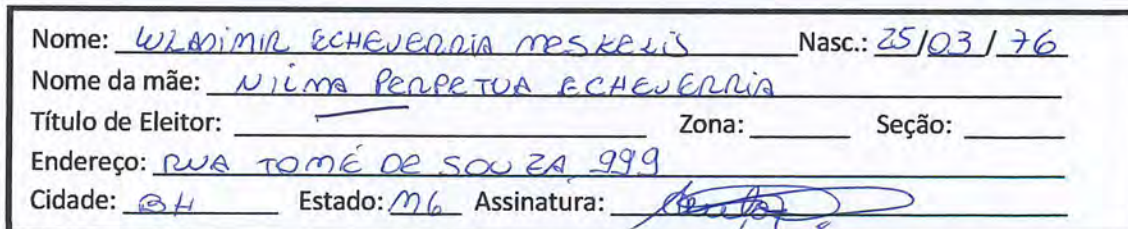 Nome: WLADIMIR ECHEVERRIA MESKELIS Nasc.: 25/03/76
Nome da mãe: NILMA PERPETUA ECHEVERRIA
Título de Eleitor: Zona: Seção:
Endereço: RUA TOMÉ DE SOUZA 999
Cidade: BH Estado: MG Assinatura: